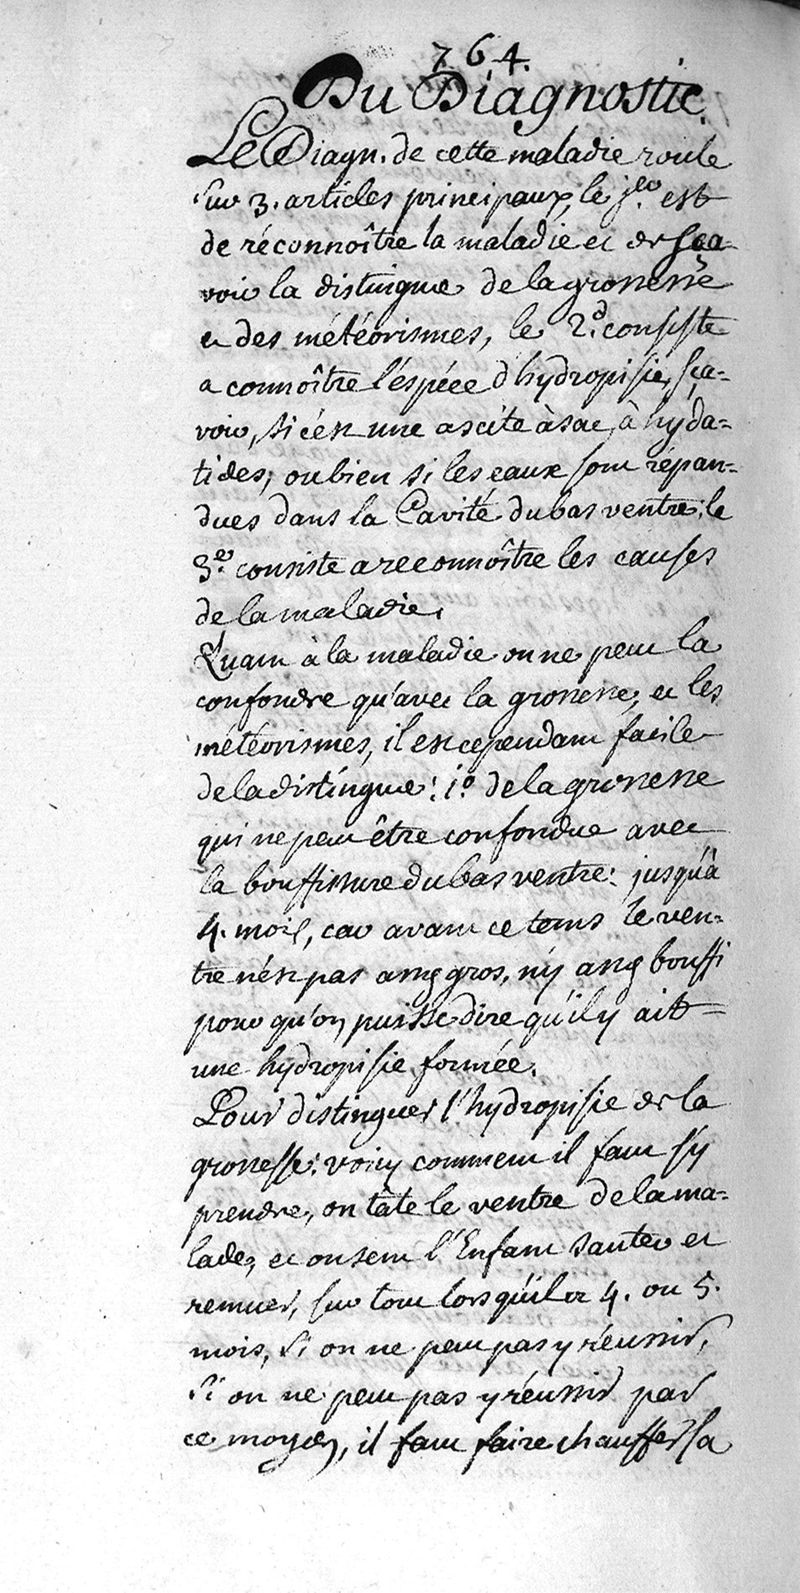 764.
Du Diagnostic.
Le Diagn. de cette maladie roule
sur 3. articles principaux, le j.er est
de réconnoître la maladie et de sça-
voir la distinguer de la grossesse
et des météorismes, le 2.d consiste
a connoître l'éspéce d'hydropisie, sça-
voir, si c'ést une ascite à sac, à hyda=
tides; ou bien si les eaux sont répan=
dues dans la Cavité du bas ventre; le
3.e consiste a reconnoître les causes
de la maladie.
Quant à la maladie on ne peut la
confondre qu'avec la grossesse, et les
météorismes, il est cependant facile
de la distinguer: 1.o de la grossesse
qui ne peut être confondue avec
la bouffissure du bas ventre: jusqu'à
4. mois, car avant ce tems le ven-
tre n'ést pas assez gros, n'y assez bouffi
pour qu'on puisse dire qu'il y ait
une hydropisie formée.
Pour distinguer l'hydropisie de la
grossesse: voicy comment il faut s'y
prendre, on tâte le ventre de la ma=
lade, et on sent l'Enfant sauter et
remuer, sur tout lorsqu'il a 4. ou 5.
mois, si on ne peut pas y réussir,
si on ne peut pas y réussir par
ce moyen, il faut faire chauffer la